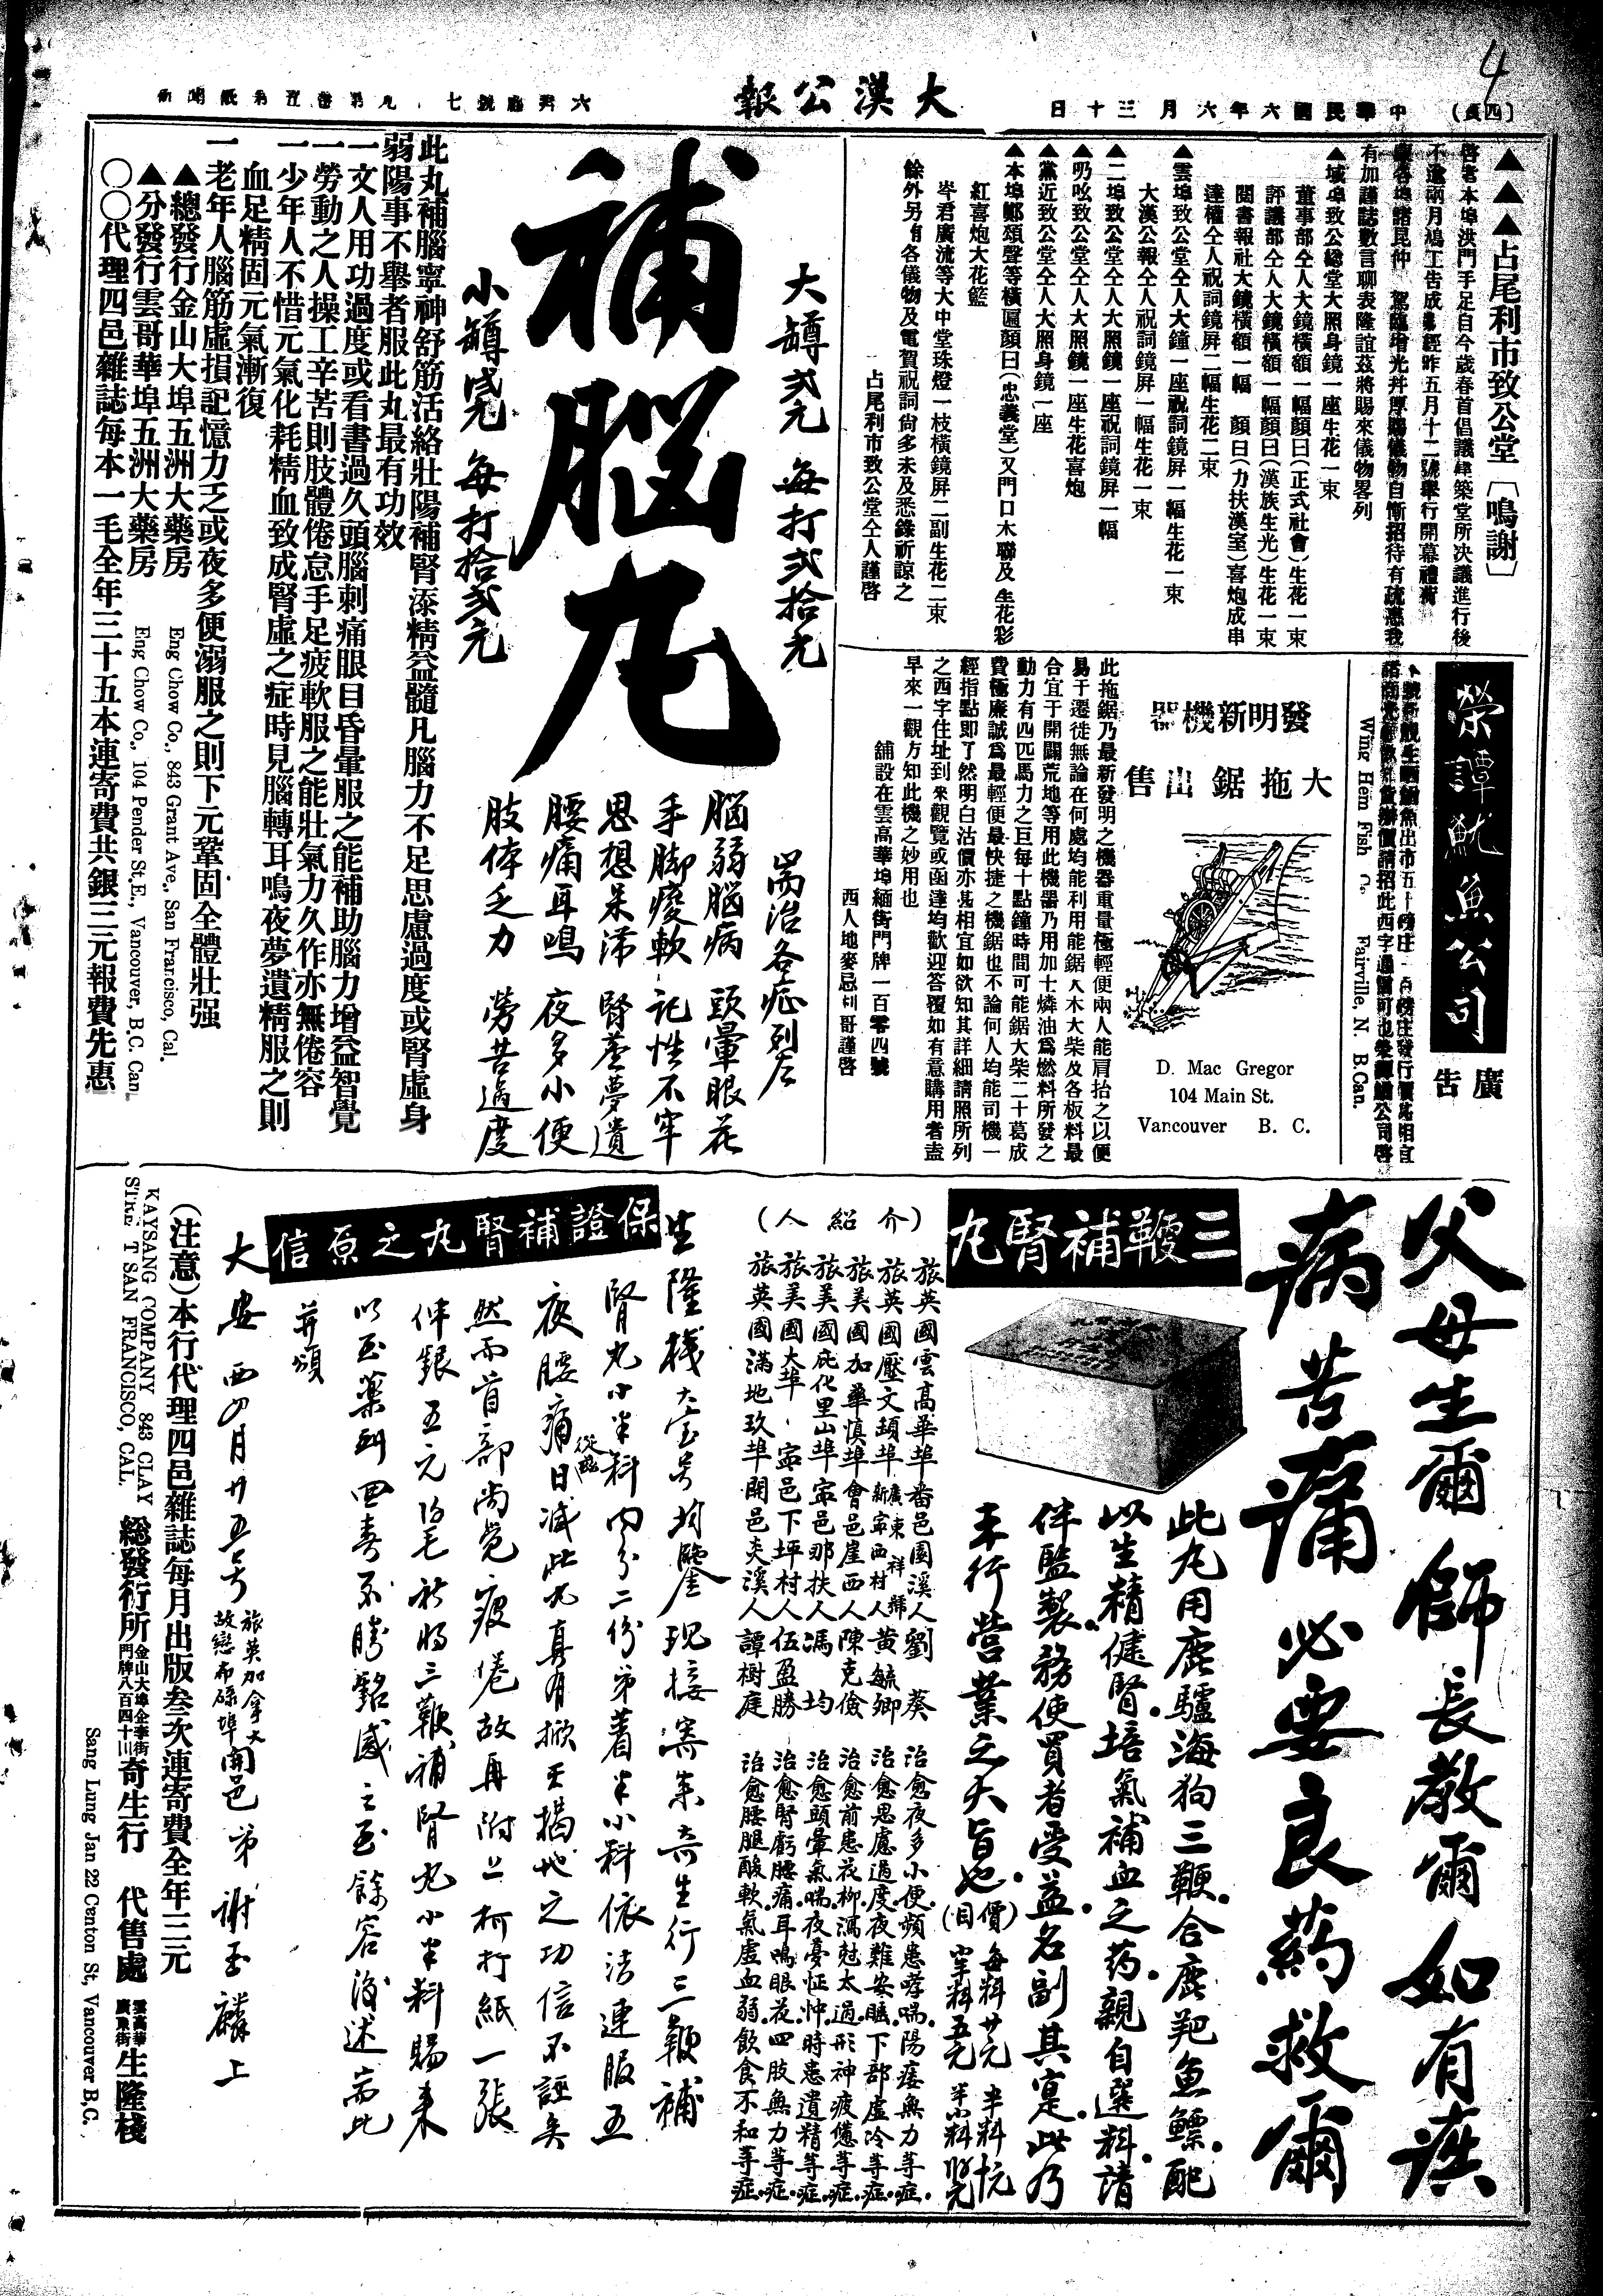 4
(四頁)
中華民國六年六月三十日
大漢公報
▲▲▲占尾利市致公堂〔鳴謝〕
啓者本埠洪門手足自今歲春首倡議建築堂所决議進行後
不逾兩月鳩工告成經昨五月十二號舉行開幕禮荷
有加謹誌數言聊表隆誼茲將賜來儀物畧列
▲域埠致公總堂大照身鏡一座生花一束
董事部仝人大鏡橫額一幅顏曰(正式社會)生花一束
評議部仝人大鏡橫額一幅顏曰(漢族生光)生花一束
閱書報社大鏡橫額一幅 顏曰(力扶漢室)喜炮成串
達權仝人祝詞鏡屏二幅生花二束
▲雲埠致公堂仝人大鐘一座祝詞鏡屏一幅生花一束
大漢公報仝人祝詞鏡屏一幅生花一束
▲二埠致公堂仝人大照鏡一座祝詞鏡屏一幅
▲叨吆致公堂仝人大照鏡一座生花喜炮
▲黨近致公堂仝人大照身鏡一座
▲本埠鄭頌聲等橫匾顏曰(忠義堂)又門口木聯及生花彩
紅喜炮大花籃
岑君廣流等大中堂珠燈一枝橫鏡屏二副生花二束
餘外另有各儀物及電賀祝詞尙多未及悉錄祈諒之
占尾利市致公堂仝人謹啓
榮譚魷魚公司
廣告
Wing Hem Fish Co. Fairville, N. B. Can.
發明新機器
大拖鋸出售
D. Mac Gregor
104 Main St.
Vancouver B. C.
此拖鋸乃最新發明之機器重量極輕便兩人能肩抬之以便
易于遷徙無論在何處均能利用能鋸大木大柴及各板料最
合宜于開闢荒地等用此機器乃用加士燐油爲燃料所發之
動力有四匹馬力之巨每十點鐘時間可能鋸大柴二十葛成
費極廉誠爲最輕便最快捷之機鋸也不論何人均能司機一
經指點即了然明白沽價亦甚相宜如欲知其詳細請照所列
之西字住址到來觀覽或函達均歡迎答覆如有意購用者盍
早來一觀方知此機之妙用也
舖設在雲高華埠緬街門牌一百零四號
西人地麥忌利哥謹啓
大罇弍元 每打弍拾元
補腦丸
小罇 每打拾弍元
耑治各症列左
腦弱腦病 頭暈眼花
手脚痠軟 記性不牢
思想呆滯 腎虛夢遺
腰痛耳鳴 夜多小便
肢体乏力 勞苦過度
此丸補腦寧神舒筋活絡壯陽補腎添精益髓凡腦力不足思慮過度或腎虛身
弱陽事不舉者服此丸最有功效
一文人用功過度或看書過久頭腦刺痛眼目昏暈服之能補助腦力增益智覺
一勞動之人操工辛苦則肢體倦怠手足疲軟服之能壯氣力久作亦無倦容
一少年人不惜元氣化耗精血致成腎虛之症時見腦轉耳鳴夜夢遺精服之則
血足精固元氣漸復
一老年人腦筋虛損記憶力乏或夜多便溺服之則下元鞏固全體壯强
▲總發行金山大埠五洲大藥房
Eng Chow Co., 843 Grant Ave., San Francisco, Cal.
▲分發行雲哥華埠五洲大藥房
Eng Chow Co., 104 Pender St,E., Vancouver, B.C. Can.
〇〇代理四邑雜誌每本一毛全年三十五本連寄費共銀三元報費先惠
父母生爾師長教爾如有疾
病苦痛必要良葯救爾
三鞭補腎丸
此丸用鹿驢海狗三鞭合鹿羓魚鰾配
以生精健腎培氣補血之葯親自選料請
伴監製務使買者受益名副其寔此乃
本行營業之大旨也
(價目)
每料廿元 半料
(介紹人)
旅英國雲高華埠番邑園溪人劉葵 治愈夜多小便頻患哮喘陽痿無力等症
旅英國壓文頭埠新寧西村人黃毓卿 治愈思慮過度夜難安眠下部虛冷等症
旅美國加華慎埠會邑崖西人陳克儉 治愈前患花柳瀉尅太過形神疲憊等症
旅美國庇化里山埠寧邑那扶人馮均 治愈頭暈氣喘夜憂怔忡時患遺精等症
旅美國大埠寧邑下坪村人伍盈勝 治愈腎虧腰痛耳鳴眼花四肢無力等症
旅英國滿地玖埠開邑夾溪人譚樹庭 治愈腰腿酸軟氣虛血弱飲食不和等症
保證補腎丸之原信
生隆棧大寳号均鑒現接寄來奇生行三鞭補
腎丸小半料內分二份弟着半小料依法連服五
夜腰痛日減此丸真有掀天揭地之功信不誣矣
然而首部尚覺疲倦故再附上柯打紙一張
伴銀五元 毛祈將三鞭補腎丸小半料賜來
以至葯到回春不勝銘感之至餘容後述耑此
并頌
大安 西四月廿五号 旅英加拿大 故戀布碌埠 開邑弟謝玉麟上
(注意)本行代理四邑雜誌每月出版叁次連寄費全年三元
KAYSANG COMPANY 843 CLAY
STREET SAN FRANCISCO, CAL.
總發行所 金山大埠企李街 門牌八百四十三 奇生行 代售處 雲高華 廣東街 生隆棧
Sang Lung Jan 22 Center St, Vancouver B,C.